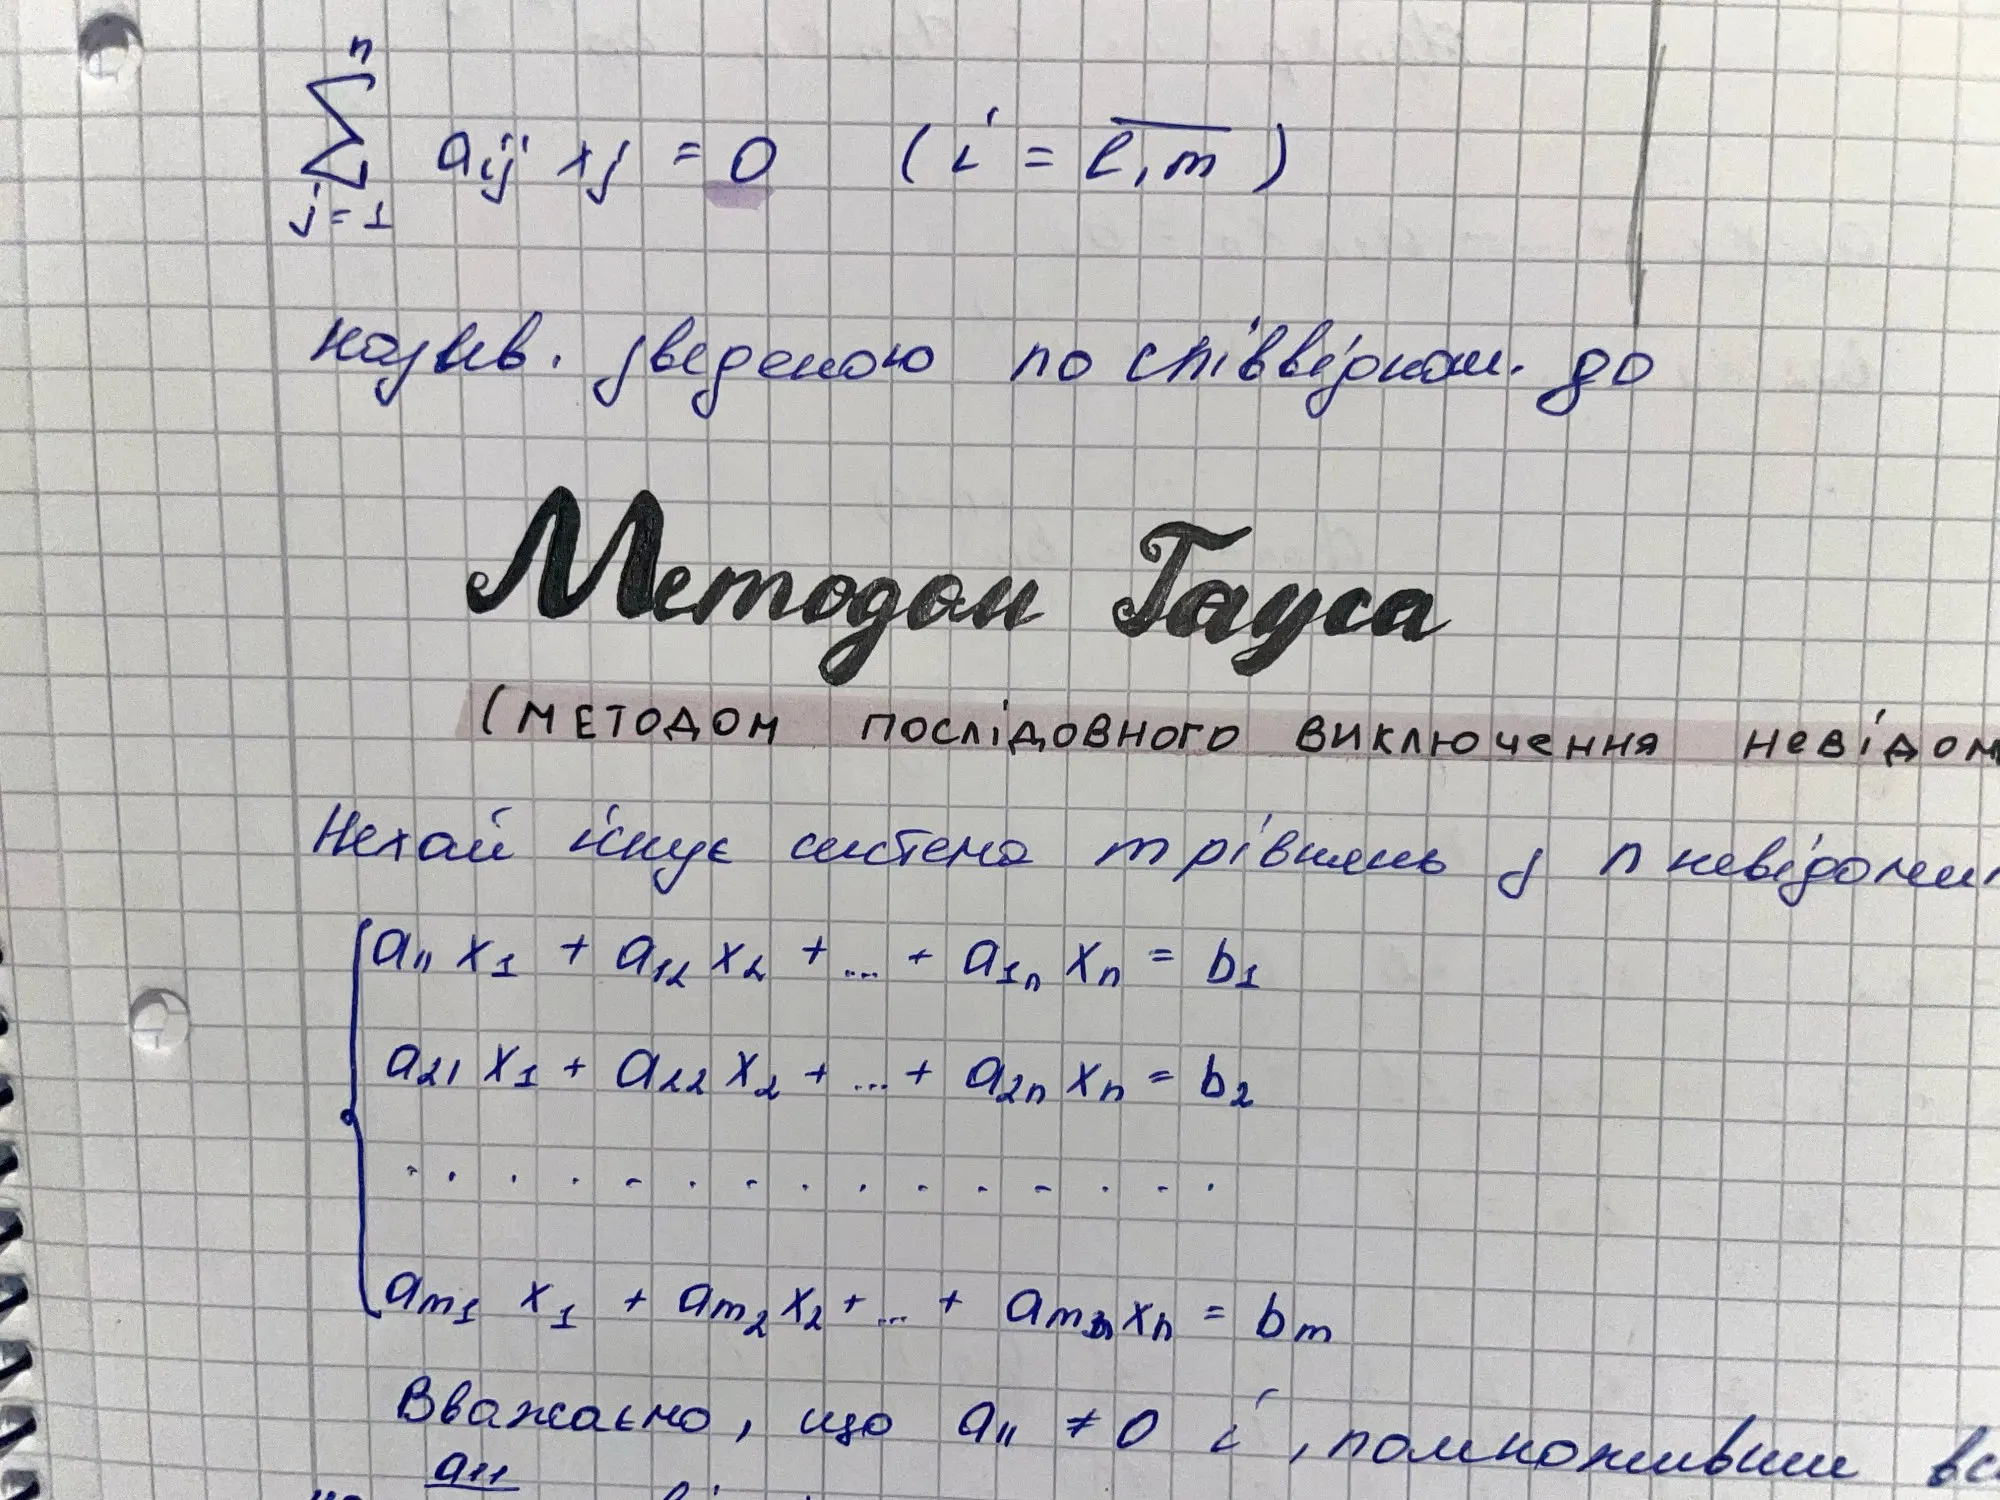 n
∑ aij xj = 0 (i = l,m)
j=1
назив. зведеною по співвіднош. до
Методом Гауса
(методом послідовного виключення невідом
Нехай існує система m рівнянь з n невідомим
a11 x1 + a12 x2 + ... + a1n xn = b1
a21 x1 + a22 x2 + ... + a2n xn = b2
. . . . . . . . . . . . . . .
am1 x1 + am2 x2 + ... + amn xn = bm
Вважаємо, що a11 ≠ 0 і, помноживши вс
a11